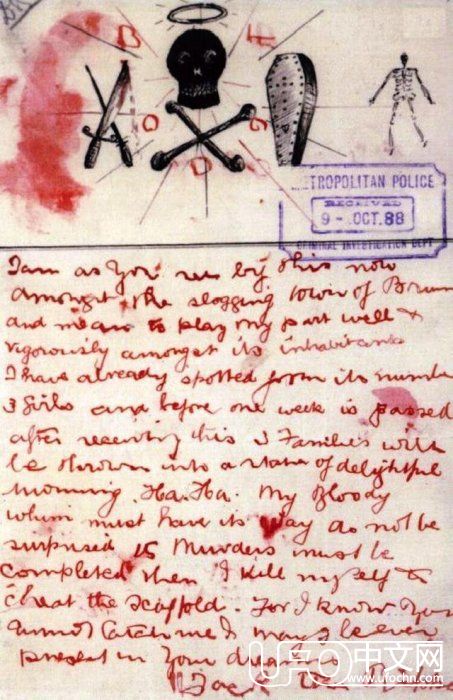 B F
O G
D
TROPOLITAN POLICE
RECEIVED
9 - .OCT.88
CRIMINAL INVESTIGATION DEPT
I am as you see by this now
amongst the slogging town of Brum
and mean to play my part well &
vigorously amongst its inhabitants
I have already spotted from its numbe
3 Girls and before one week is passed
after receiving this 3 Families will
be thrown into a state of delightful
Mourning. Ha. Ha. My Bloody
whim must have its way do not be
surprised 15 Murders must be
completed then I kill myself to
cheat the scaffold. For I know you
cannot catch me & I may be even
present in your
Jack the
UFO中文网
www.ufochn.com